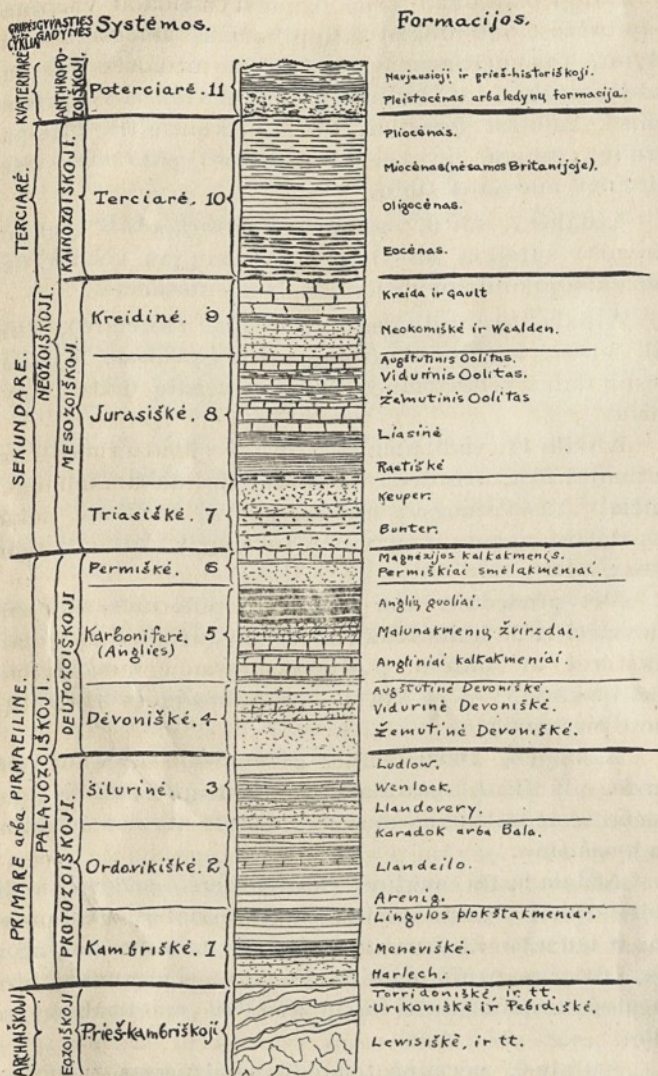 GRUPĖS GYVASTIES
CYKLIŲ GADYNĖS
Systėmos.
Formacijos.
KVATERNARĖ
ANTHROPO-
ZOIŠKOJI
Poterciarė. 11
Naujausioji ir prieš-historiškoji.
Pleistocėnas arba ledynų formacija.
TERCIARĖ.
KAINOZOIŠKOJI.
Terciarė. 10
Pliocėnas.
Miocėnas (nėsamos Britanijoje).
Oligocėnas.
Eocėnas.
SEKUNDARE.
NEOZOIŠKOJI.
MESOZOIŠKOJI.
Kreidinė. 9
Kreida ir Gault
Neokomiškė ir Wealden.
Jurasiškė. 8
Augštutinis Oolitas.
Vidurinis Oolitas.
Žemutinis Oolitas
Liasinė
Raetiškė
Triasiškė. 7
Keuper.
Bunter.
PRIMARE arba PIRMAEILINE
PALAJOZOIŠKOJI
DEUTOZOIŠKOJI
Permiškė. 6
Magnėzijos kalkakmenis.
Permiškiai smėlakmeniai.
Karboniferė. 5
(Anglies)
Anglių guoliai.
Malunakmenių žvirzdai.
Angliniai kalkakmeniai.
Dėvoniškė. 4
Augštutinė Devoniškė.
Vidurinė Devoniškė.
Žemutinė Devoniškė.
PROTOZOIŠKOJI.
Šilurinė. 3
Ludlow.
Wenlock.
Llandovery.
Ordovikiškė. 2
Karadok arba Bala.
Llandeilo.
Arenig.
Kambriškė. 1
Lingulos plokštakmeniai.
Meneviškė.
Harlech.
ARCHAIŠKOJI
EOZOIŠKOJI
Prieš-kambriškoji
Torridoniškė, ir tt.
Urikoniškė ir Pebidiškė.
Lewisiškė, ir tt.